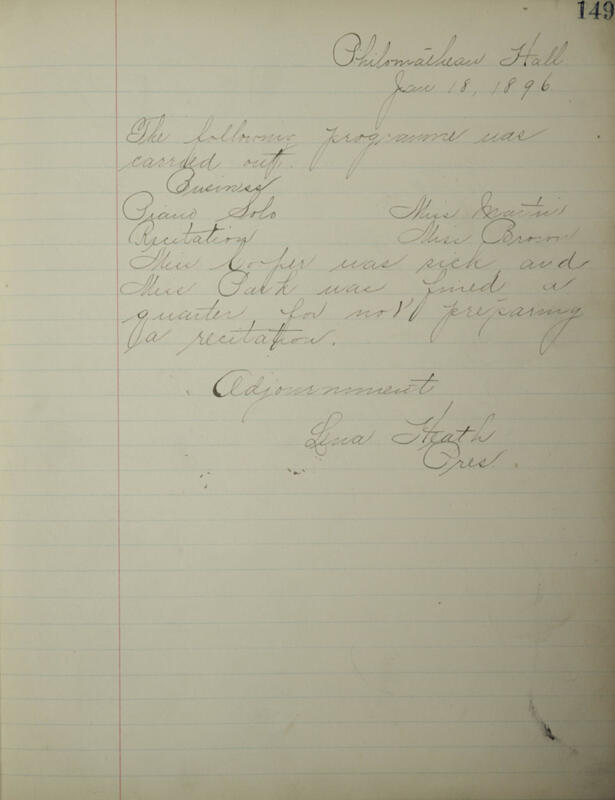 149
Philomathean Hall
Jan 18, 1896
The following programme was
carried out.
Business
Piano Solo Miss Martin
Recitation Miss Brown
Miss Cooper was sick and
Miss Park was fined a
quarter for not preparing
a recitation.
Adjournment
Lena Heath
Pres.